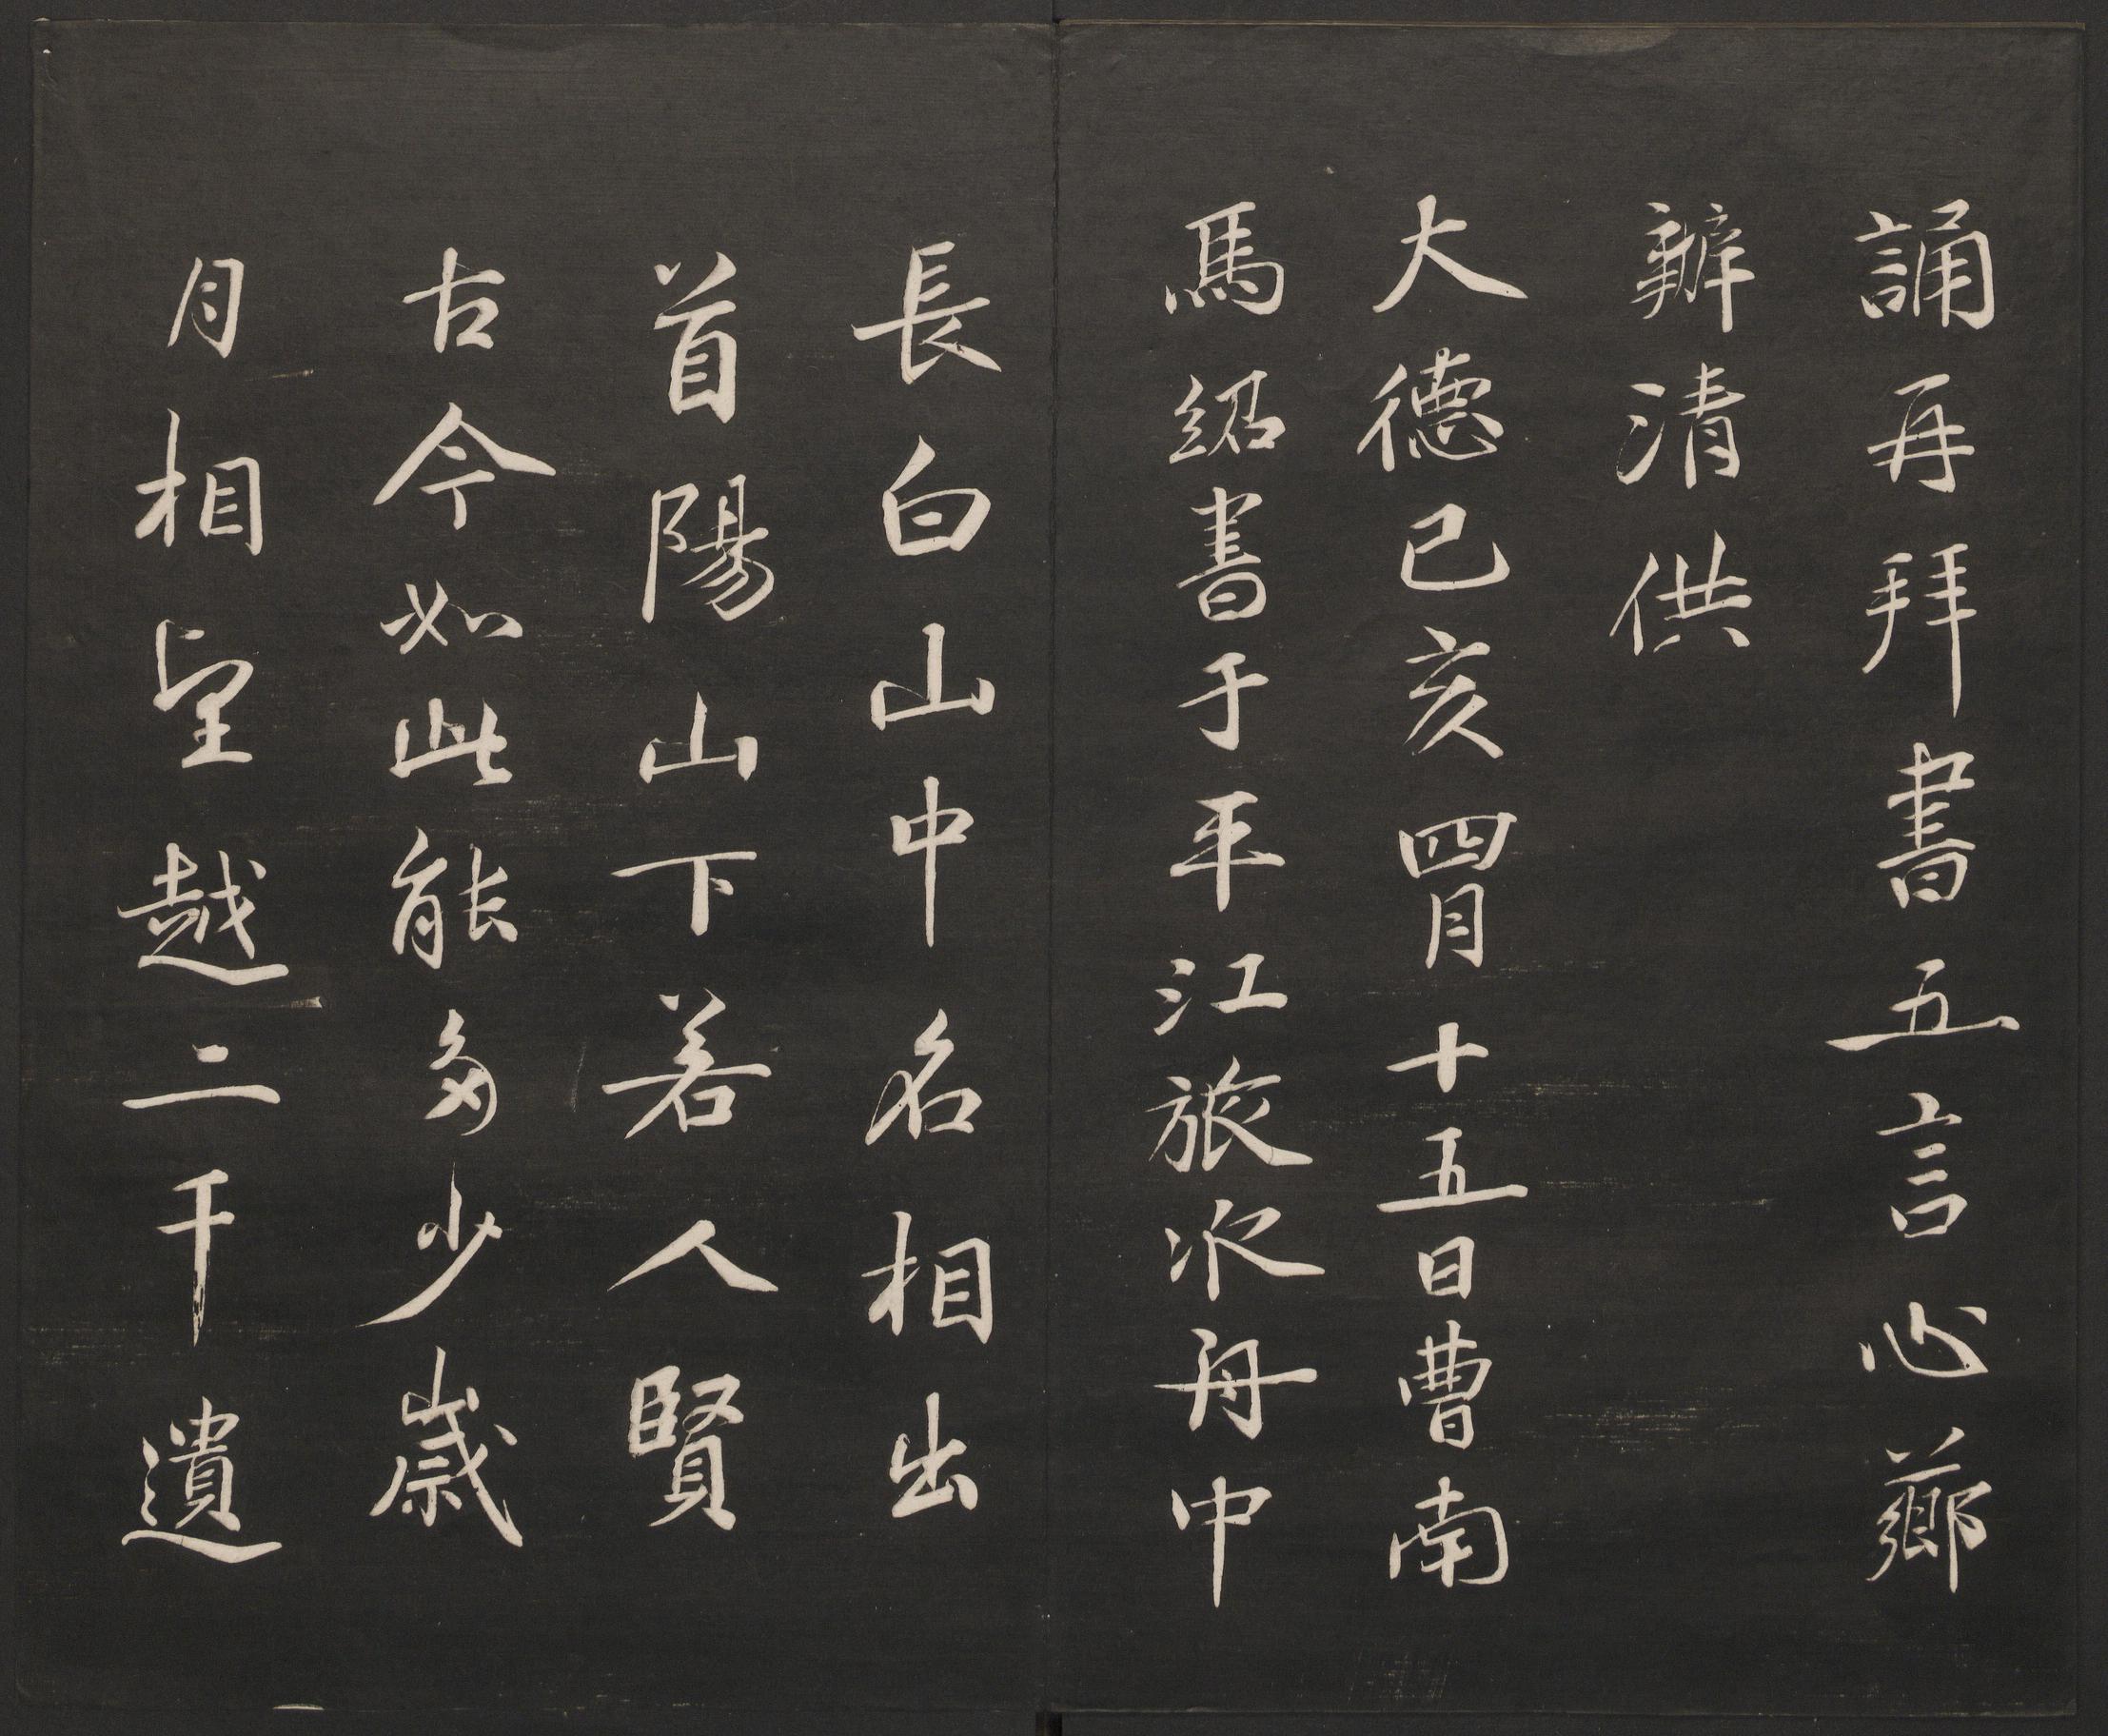 誦再拜書五言心薌
辦清供
大德己亥四月十五日曹南
馬紹書于平江旅次舟中
長白山中名相出
首陽山下若人賢
古今如此能多少歲
月相望越二千遺